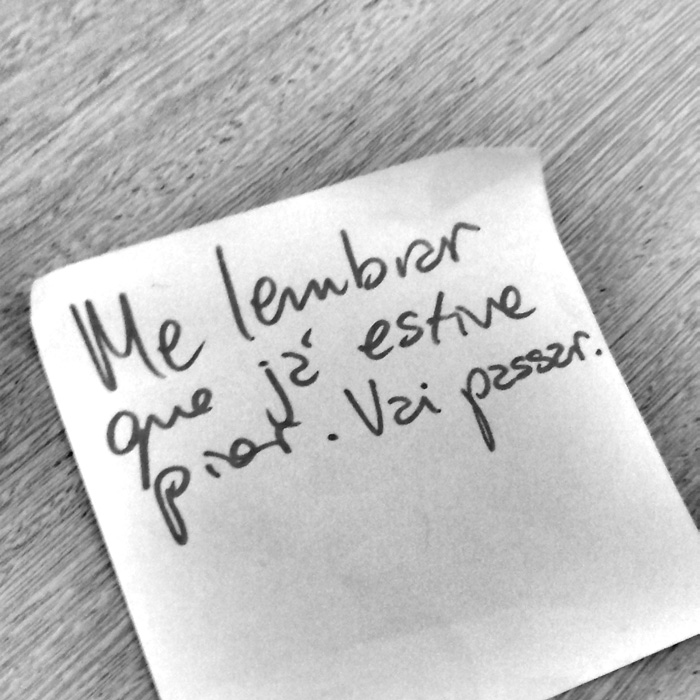 Me lembrar
que já estive
pior. Vai passar.